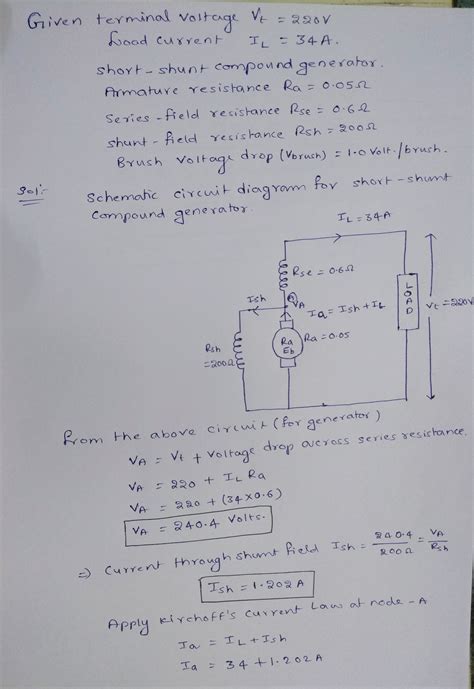 Given terminal voltage Vt = 220V
Load current IL = 34A.
short-shunt compound generator.
Armature resistance Ra = 0.05Ω
Series-field resistance Rse = 0.6Ω
shunt-field resistance Rsh = 200Ω
Brush voltage drop (Vbrush) = 1.0 Volt/brush.
Sol:- Schematic circuit diagram for short-shunt
compound generator.
IL = 34A
Rse = 0.6Ω
Ish
VA
Ia = Ish + IL
LOAD
Vt = 220V
Rsh
= 200Ω
Ra
Eb
Ra = 0.05
from the above circuit (for generator)
VA = Vt + Voltage drop across series resistance.
VA = 220 + IL Ra
VA = 220 + (34×0.6)
VA = 240.4 Volts.
⇒ Current through shunt field Ish = 240.4 / 200Ω = VA / Rsh
Ish = 1.202A
Apply Kirchoff's Current Law at node-A
Ia = IL + Ish
Ia = 34 + 1.202A